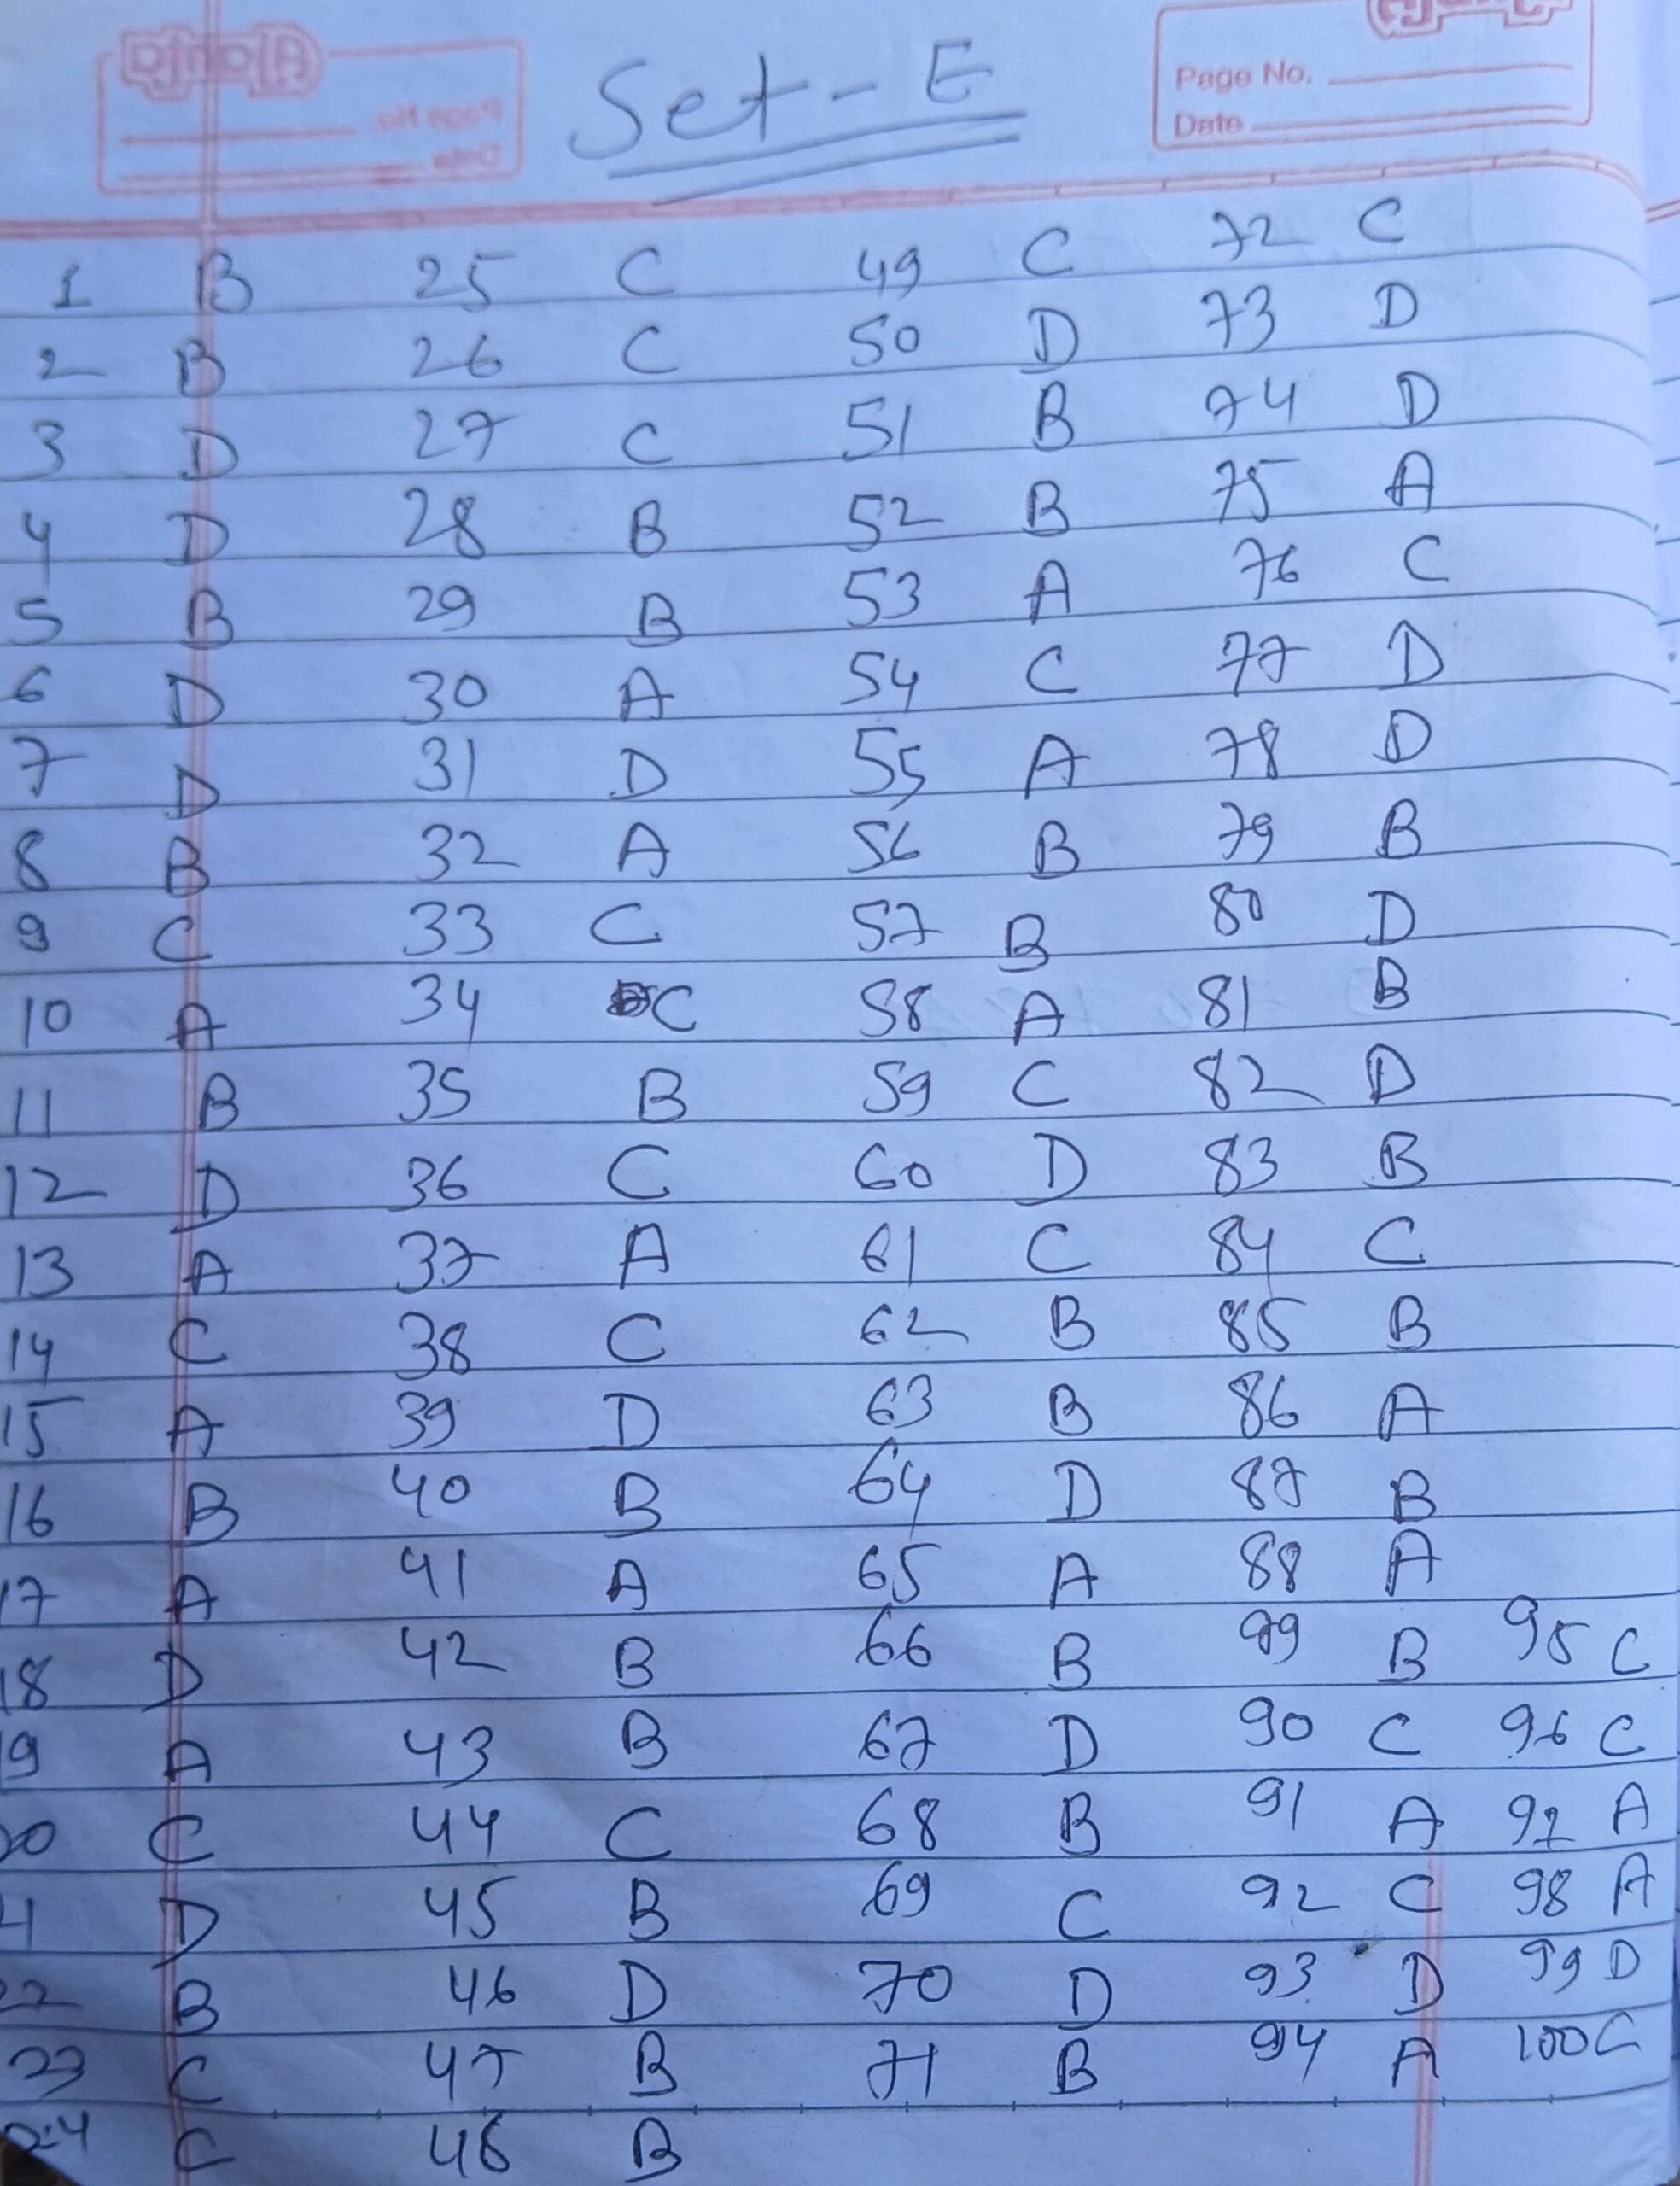 Set - E
Page No.
Date
1 B 25 C 49 C 72 C
2 B 26 C 50 D 73 D
3 D 27 C 51 B 74 D
4 D 28 B 52 B 75 A
5 B 29 B 53 A 76 C
6 D 30 A 54 C 77 D
7 D 31 D 55 A 78 D
8 B 32 A 56 B 79 B
9 C 33 C 57 B 80 D
10 A 34 C 58 A 81 B
11 B 35 B 59 C 82 D
12 D 36 C 60 D 83 B
13 A 37 A 61 C 84 C
14 C 38 C 62 B 85 B
15 A 39 D 63 B 86 A
16 B 40 B 64 D 87 B
17 A 41 A 65 A 88 A
18 D 42 B 66 B 99 B 95 C
19 A 43 B 67 D 90 C 96 C
20 C 44 C 68 B 91 A 97 A
D 45 B 69 C 92 C 98 A
22 B 46 D 70 D 93 D 99 D
23 C 47 B 71 B 94 A 100 C
24 C 48 B